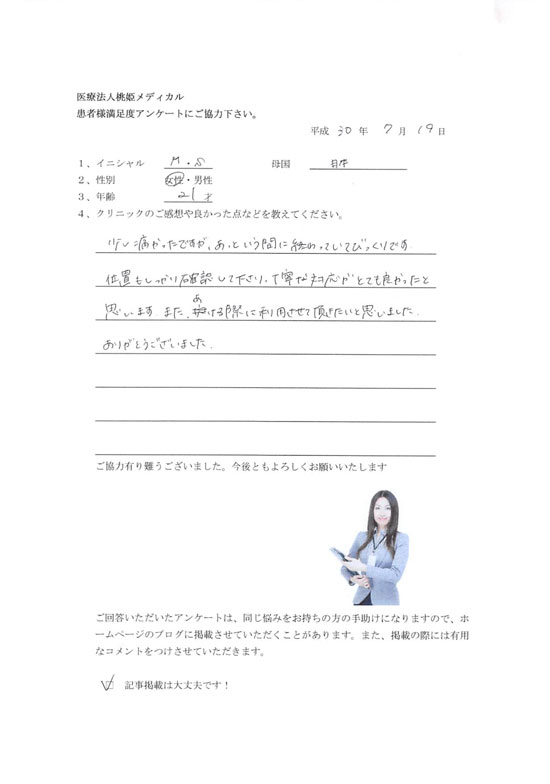 医療法人桃姫メディカル
患者様満足度アンケートにご協力下さい。
平成 30 年 7 月 19 日
1、イニシャル M・S 母国 日本
2、性別 女性・男性
3、年齢 21 才
4、クリニックのご感想や良かった点などを教えてください。
少し痛かったですが、あっという間に終わっていてびっくりです。
位置もしっかり確認して下さり、丁寧な対応がとても良かったと
思います。また、あける際に利用させて頂きたいと思いました。
ありがとうございました。
ご協力有り難うございました。今後ともよろしくお願いいたします
ご回答いただいたアンケートは、同じ悩みをお持ちの方の手助けになりますので、ホ
ームページのブログに掲載させていただくことがあります。また、掲載の際には有用
なコメントをつけさせていただきます。
記事掲載は大丈夫です！